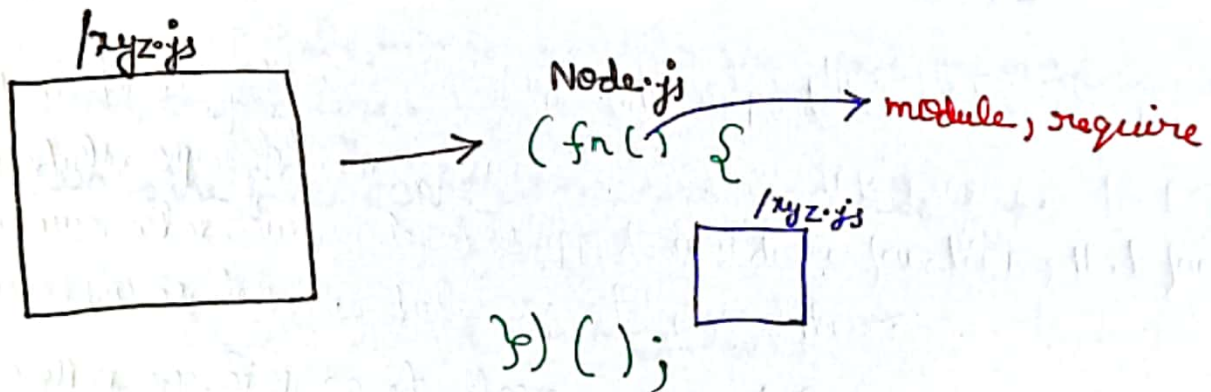 /xyz.js
Node.js
(fn() {
module, require
/xyz.js
}) ();